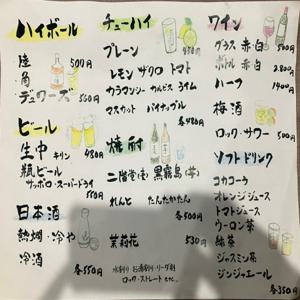 ハイボール
陸 500円
角
デュワーズ 550円
ビール
生中 キリン 480円
瓶ビール
サッポロ・スーパードライ
550円
日本酒
熱燗・冷や
冷酒
各550円
チューハイ
プレーン 450円
レモン ザクロ トマト
カラマンシー カルピス ライム
マスカット パイナップル
各480円
焼酎
二階堂(麦) 黒霧島(芋)
れんと たんたかたん
各500円
茉莉花
各530円
水割り お湯割り・ソーダ割
ロック・ストレート etc..
ワイン
グラス 赤・白 500
ボトル 赤・白 2,800
ハーフ 1400
梅酒
ロック・サワー 500円
ソフトドリンク
コカコーラ
オレンジジュース
トマトジュース
ウーロン茶
緑茶
ジャスミン茶
ジンジャエール
各350円